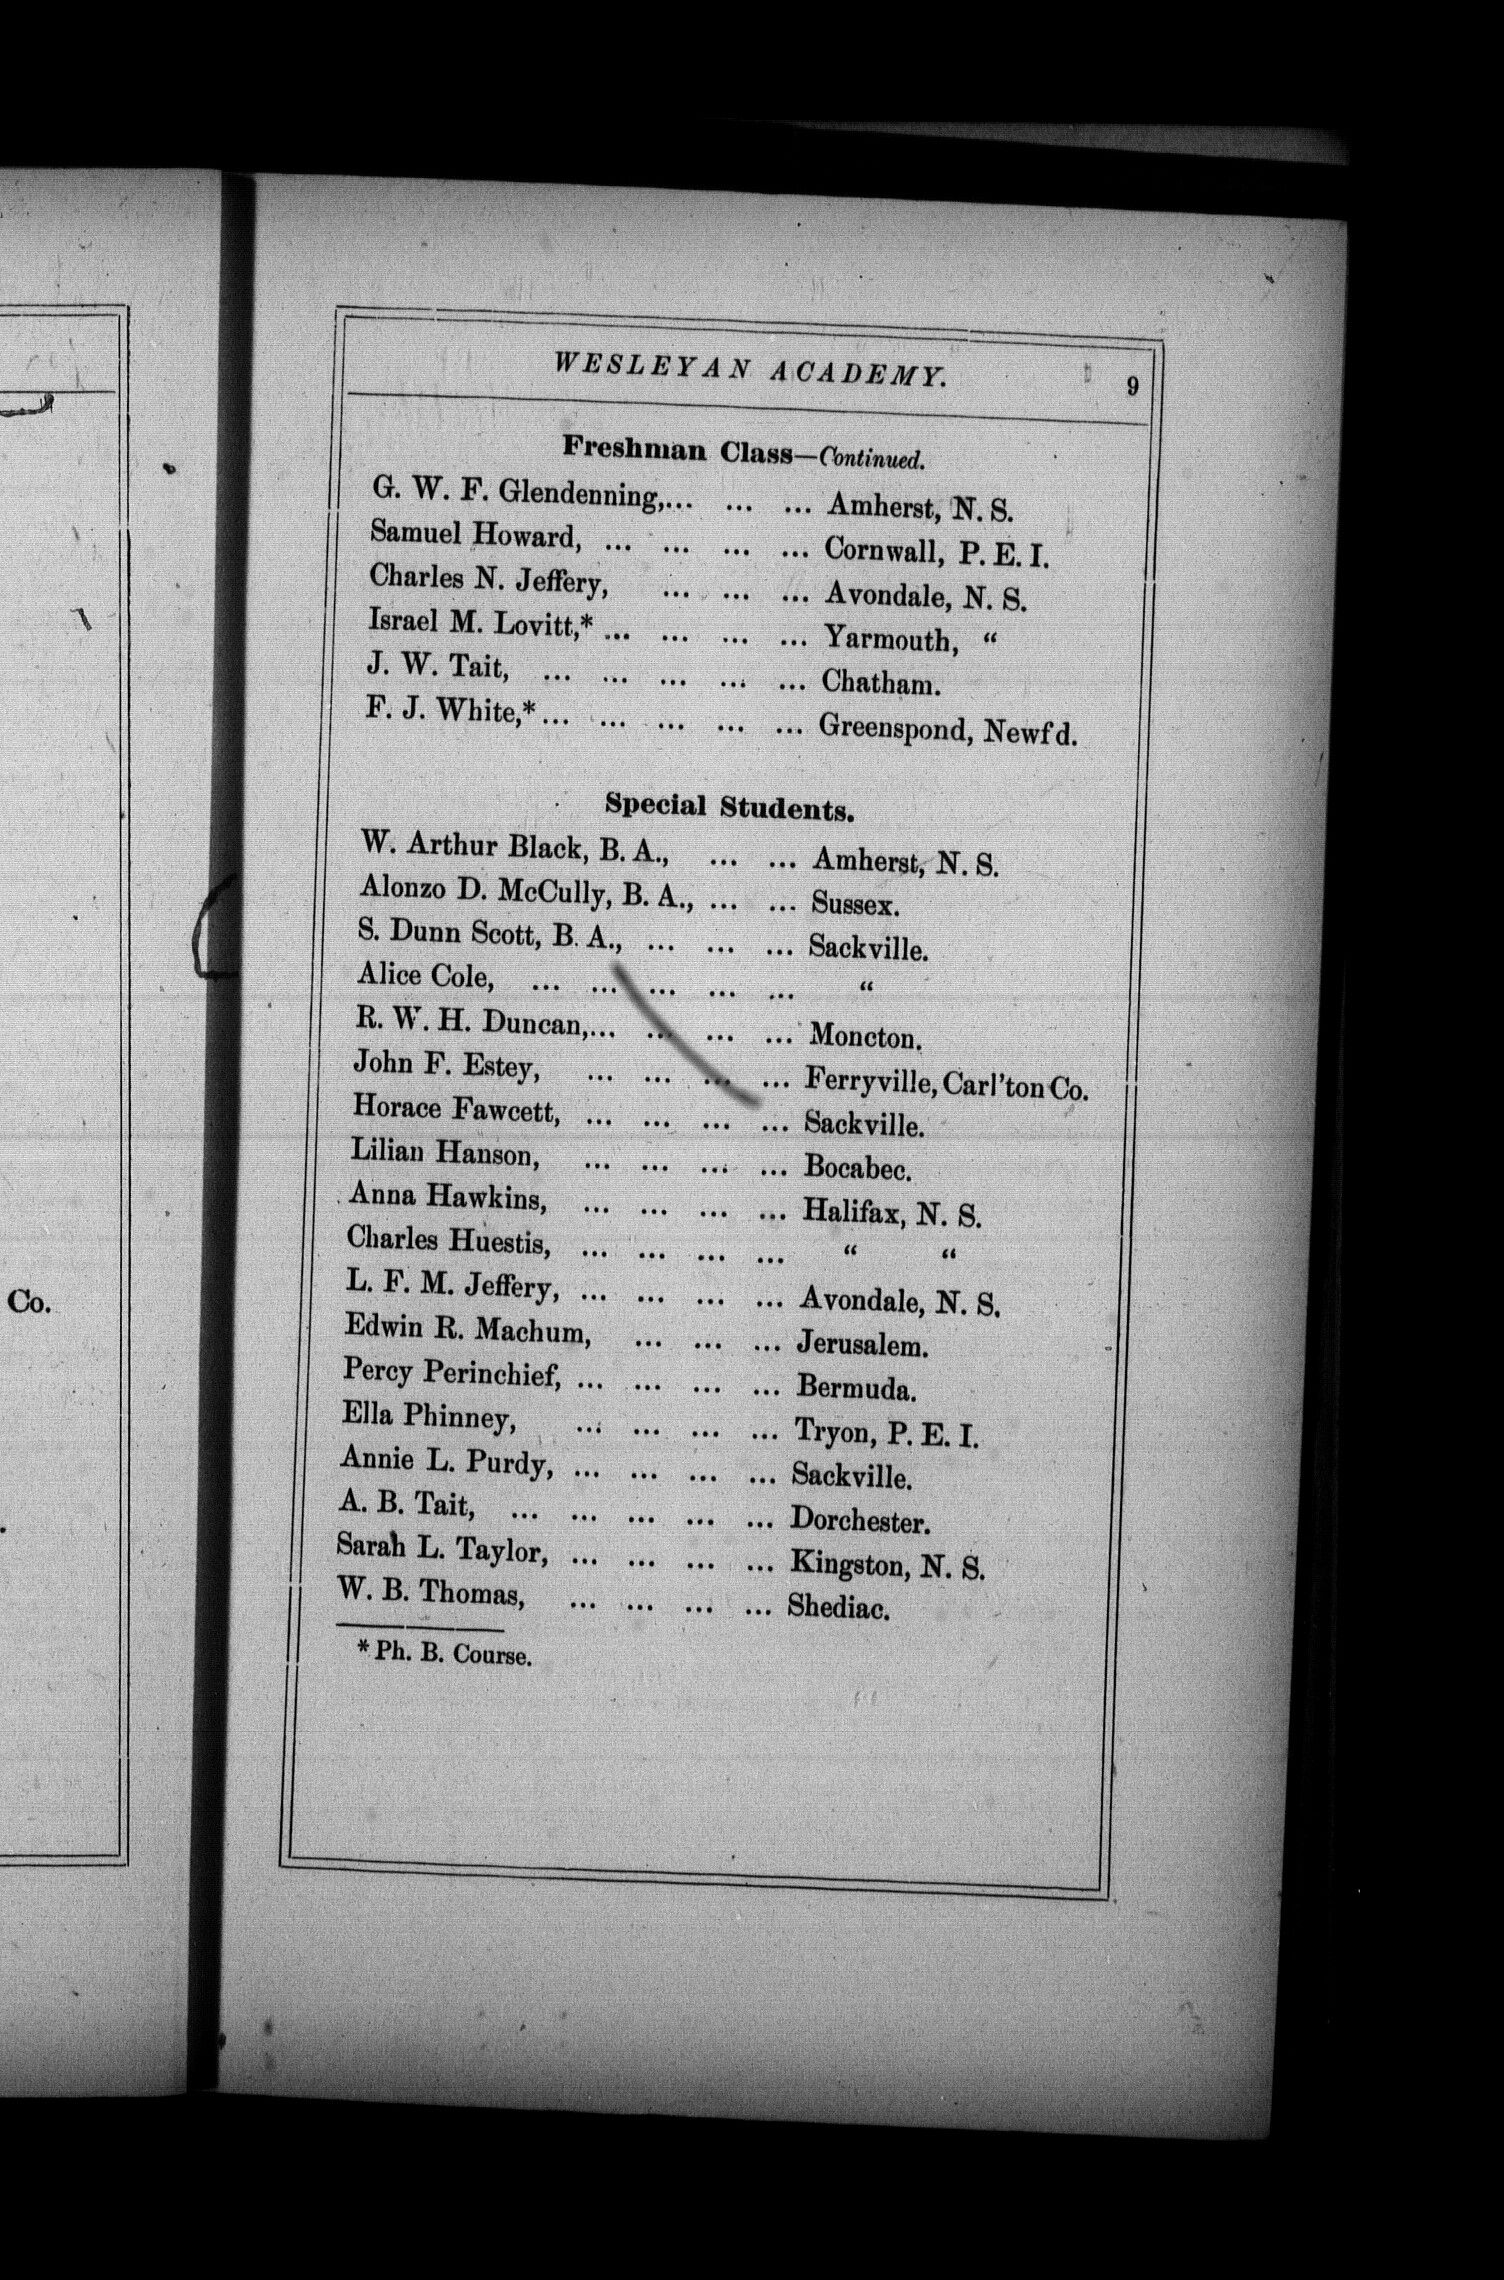 WESLEYAN ACADEMY. 9
Freshman Class—Continued.
G. W. F. Glendenning,... ... ... Amherst, N. S.
Samuel Howard, ... ... ... ... Cornwall, P. E. I.
Charles N. Jeffery, ... ... ... Avondale, N. S.
Israel M. Lovitt,* ... ... ... ... Yarmouth, “
J. W. Tait, ... ... ... ... ... Chatham.
F. J. White,* ... ... ... ... ... Greenspond, Newf'd.
Special Students.
W. Arthur Black, B. A., ... ... Amherst, N. S.
Alonzo D. McCully, B. A., ... ... Sussex.
S. Dunn Scott, B. A., ... ... ... Sackville.
Alice Cole, ... ... ... ... ... “
R. W. H. Duncan,... ... ... ... Moncton.
John F. Estey, ... ... ... ... Ferryville, Carl'ton Co.
Horace Fawcett, ... ... ... ... Sackville.
Lilian Hanson, ... ... ... ... Bocabec.
Anna Hawkins, ... ... ... ... Halifax, N. S.
Charles Huestis, ... ... ... ... “ “
L. F. M. Jeffery, ... ... ... ... Avondale, N. S.
Edwin R. Machum, ... ... ... Jerusalem.
Percy Perinchief, ... ... ... ... Bermuda.
Ella Phinney, ... ... ... ... Tryon, P. E. I.
Annie L. Purdy, ... ... ... ... Sackville.
A. B. Tait, ... ... ... ... ... Dorchester.
Sarah L. Taylor, ... ... ... ... Kingston, N. S.
W. B. Thomas, ... ... ... ... Shediac.
* Ph. B. Course.
Co.